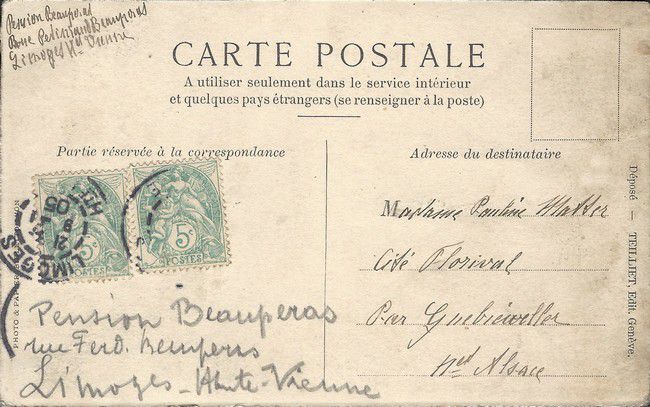 Pension Beauperas
Limoges Hte Vienne
CARTE POSTALE
A utiliser seulement dans le service intérieur
et quelques pays étrangers (se renseigner à la poste)
Partie réservée à la correspondance
Adresse du destinataire
5c
5c
POSTES
POSTES
LIMOGES
Madame Pauline Matter
Cité Florival
Par Guebwiller
Alsace
Pension Beauperas
rue Ferd.
Limoges - Haute-Vienne
PHOTO &
Déposé — TEILLIET, Edit. Genève.